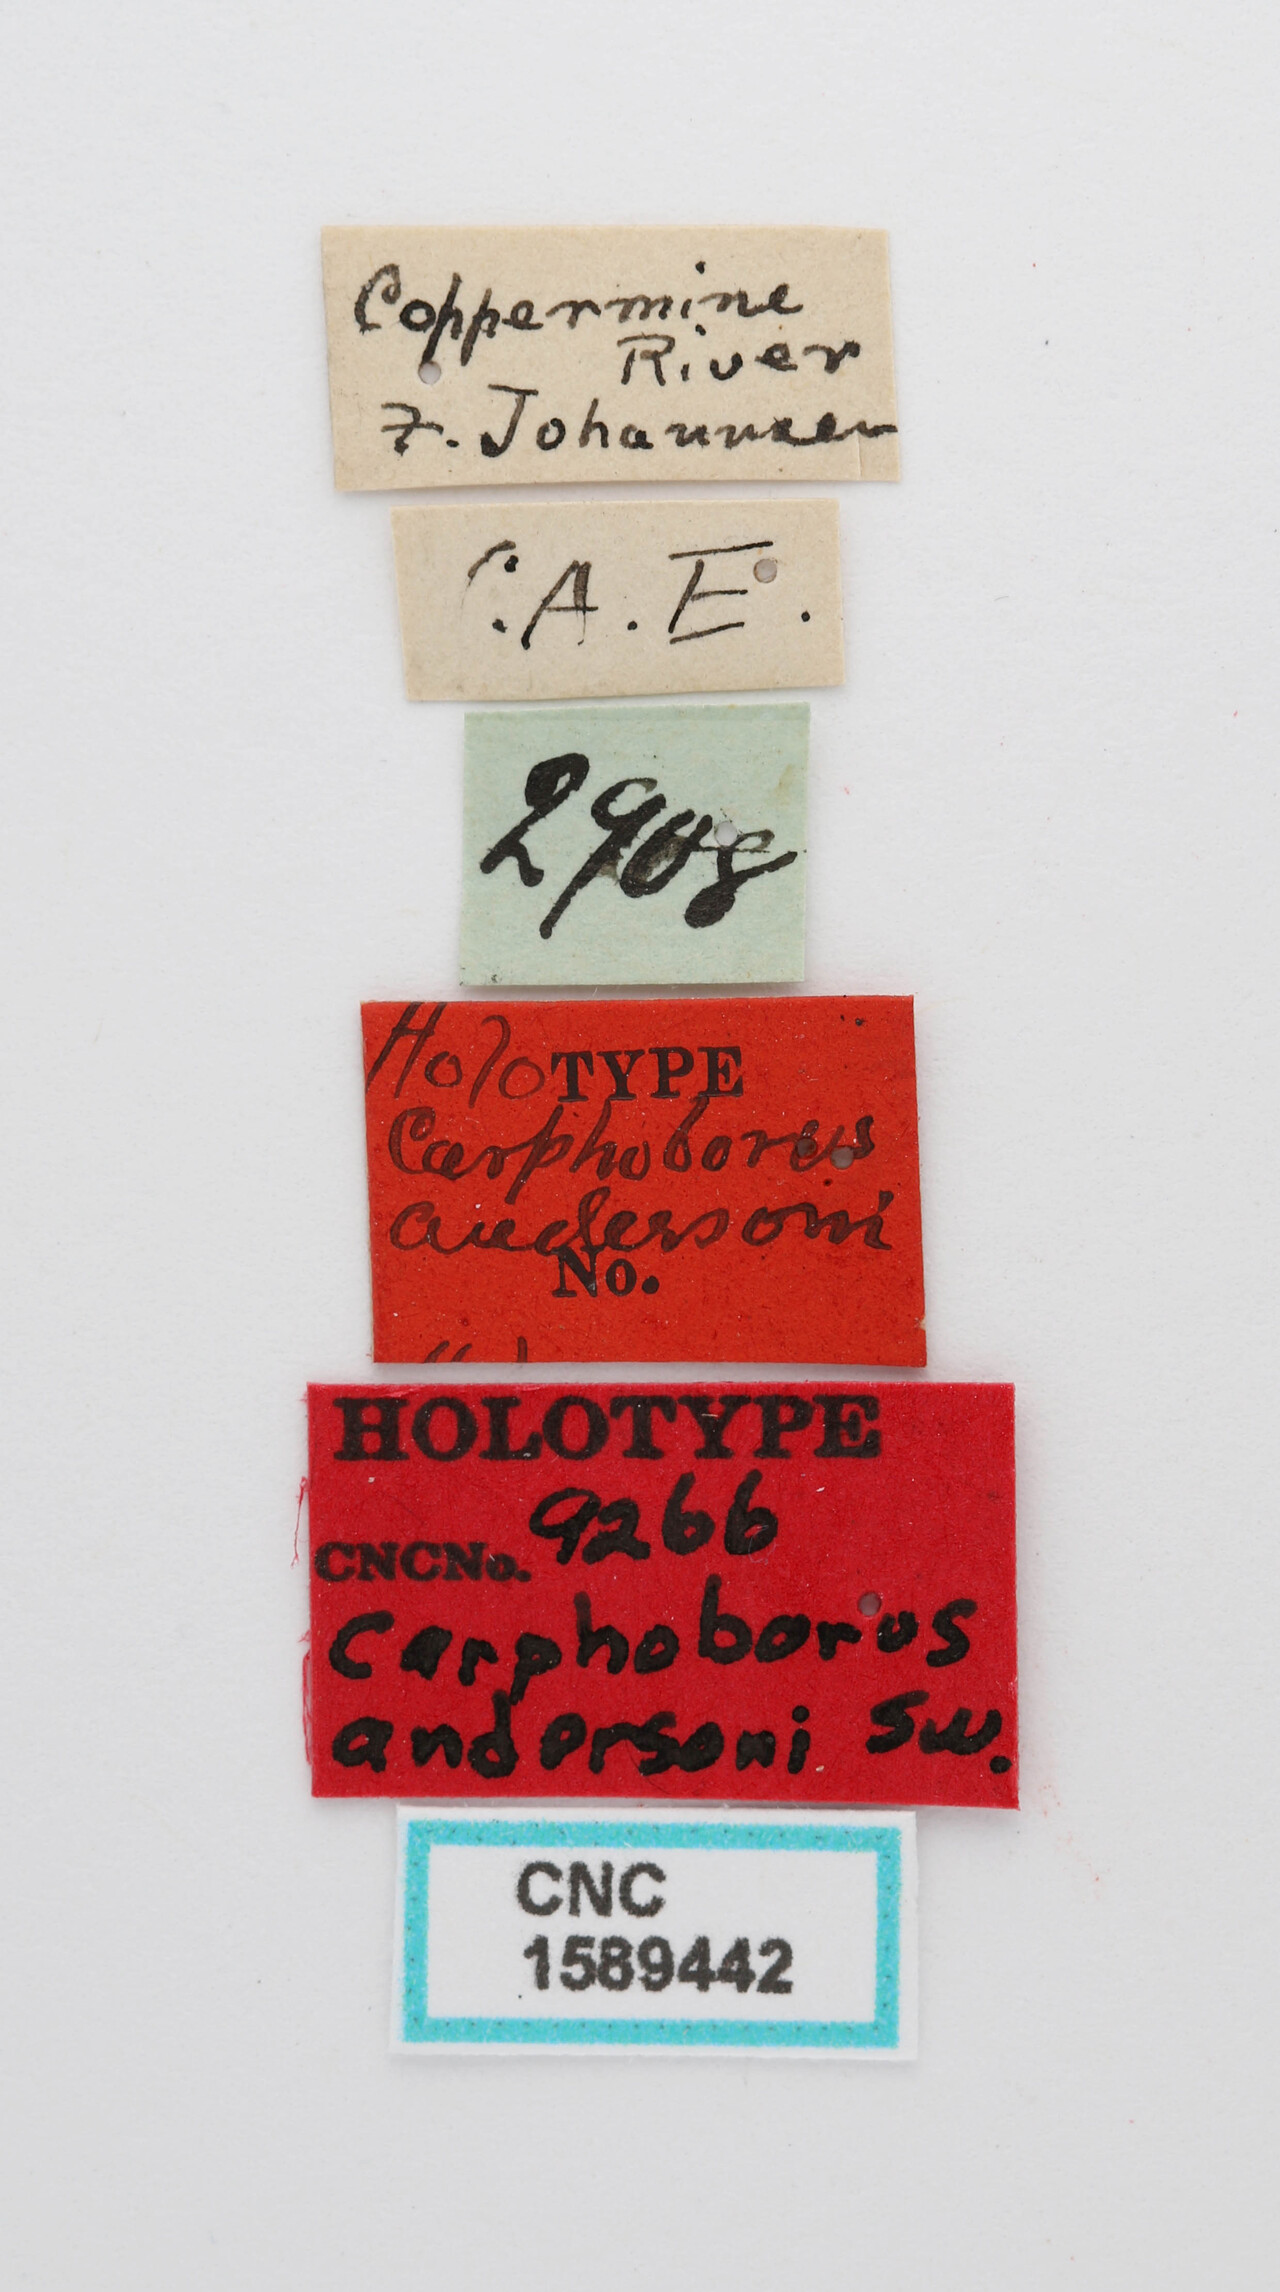 Coppermine
River
F. Johannsen
C.A.E.
2908
HoloTYPE
Carphoborus
andersoni
No.
HOLOTYPE
9266
CNCNo.
Carphoborus
andersoni Sw.
CNC
1589442